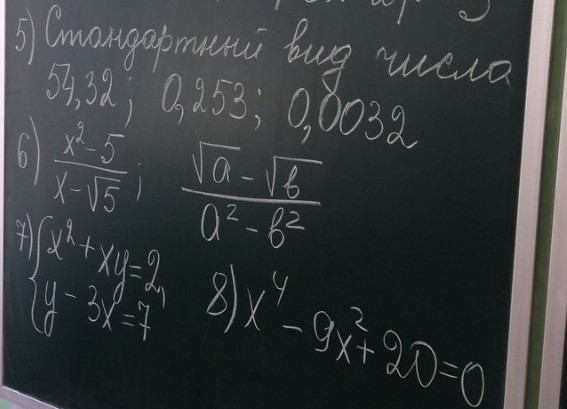 5) Стандартный вид числа
54,32; 0,253; 0,0032
6) (x²-5)/(x-√5); (√a-√в)/(a²-в²)
7) { x²+xy=2,
y-3x=7
8) x⁴-9x²+20=0